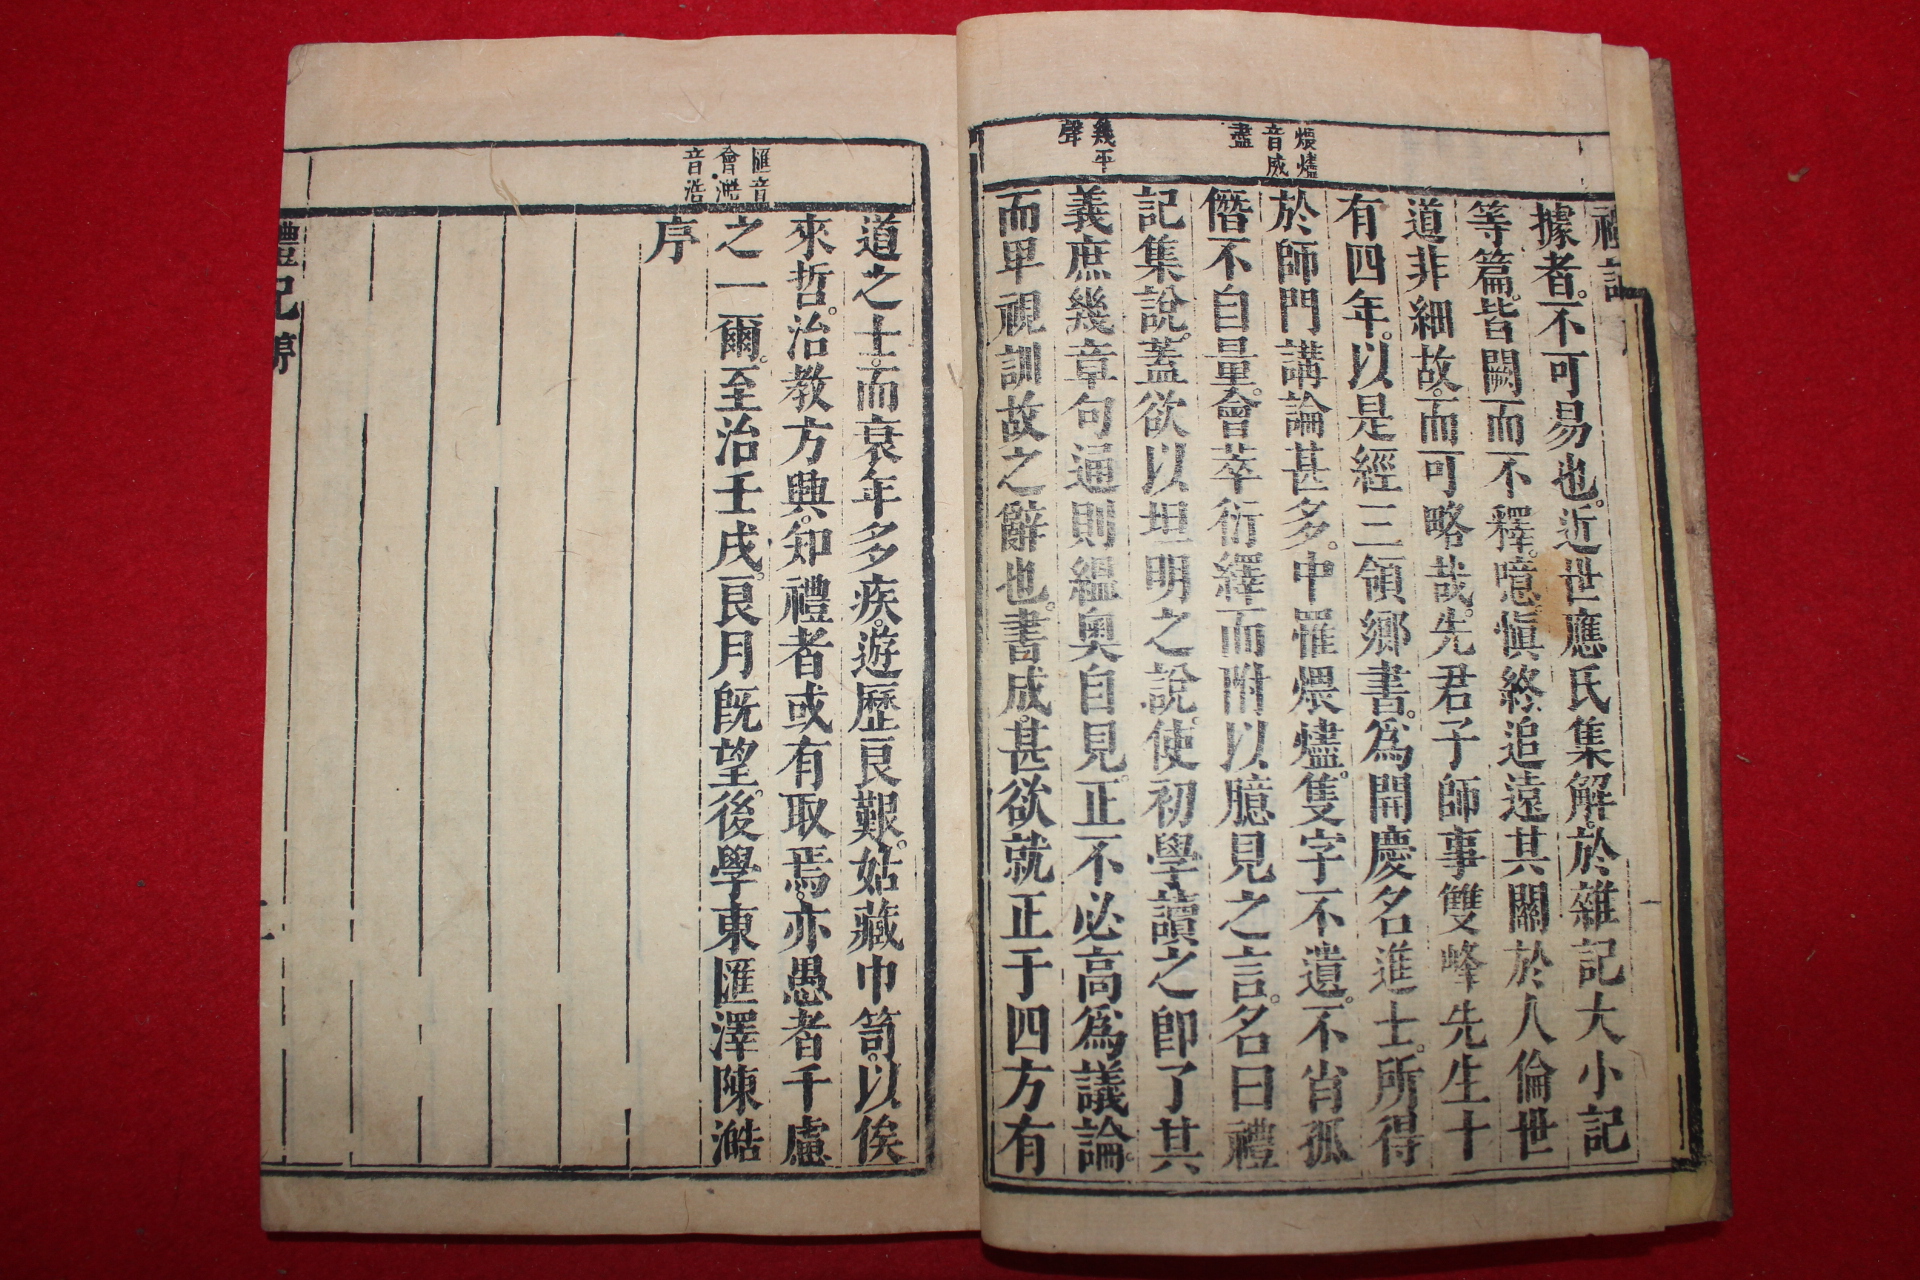 煨燼
音威
盡
幾平
聲
據者。不可易也。近世應氏集解。於雜記大小記
等篇。皆闕而不釋。噫愼終追遠。其關於人倫世
道非細故。而可略哉。先君子師事雙峰先生十
有四年。以是經三領鄉書。爲開慶名進士。所得
於師門講論甚多。中罹煨燼。隻字不遺。不肖孤
僭不自量。會萃衍繹而附以臆見之言。名曰禮
記集說。蓋欲以坦明之說。使初學讀之卽了其
義。庶幾章句通則縕奧自見。正不必高爲議論。
而卑視訓故之辭也。書成。甚欲就正于四方有
匯音
會澔
音浩
道之士。而衰年多疾。遊歷良艱。姑藏巾笥。以俟
來哲。治教方興。知禮者或有取焉。亦愚者千慮
之一爾。至治壬戌。良月旣望。後學東匯澤陳澔
序
禮記序